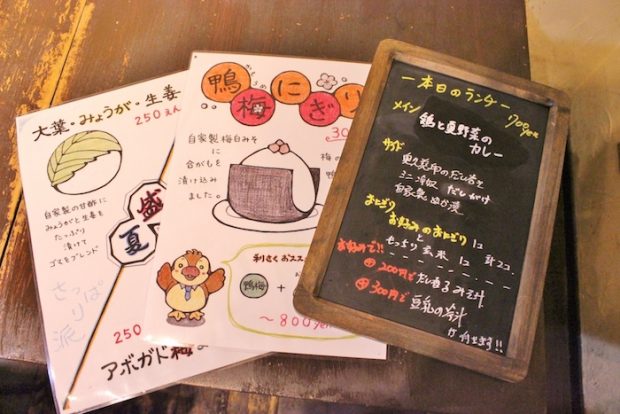 大葉・みょうが・生姜
250えん
自家製の甘酢に
みょうがと生姜を
たっぷり
漬けて
ゴマをブレンド
盛夏
さっぱり派
250
アボガド梅
鴨にぎり
梅
30
自家製梅白みそ
に
合がもを
漬け込み
ました。
梅の
鴨
利さくおスス
鴨梅
+
〜800yen
一本日のランチー
700yen
メイン
鶏と夏野菜の
カレー
サイド
だし巻き
ミニ冷奴 だしがけ
自家製ぬか漬
おにぎり
お好みのおにぎり に
と
もっちり玄米 に 計2コ
お好みで!!
+200円で だし香るみそ汁
+300円で 豆乳の
が付きます!!